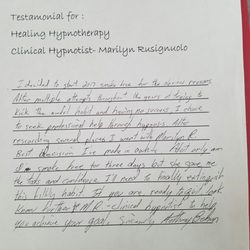 Testamonial for :
Healing Hypnotherapy
Clinical Hypnotist- Marilyn Rusignuolo
I decided to start 2017 smoke free for the obvious reasons.
After multiple attempts throughout the years of trying to
kick the awful habit and having no success I chose
to seek professional help through hypnosis. After
researching several places I went with Marilyn R.
Best decision I've made in awhile. Not only am
I smoke free for three days but she gave me
the tools and confidence I'll need to finally extinguish
this filthy habit. If you are ready to quit look
know further M.R. - clinical hypnotist to help
you achieve your goal. Sincerely Anthony